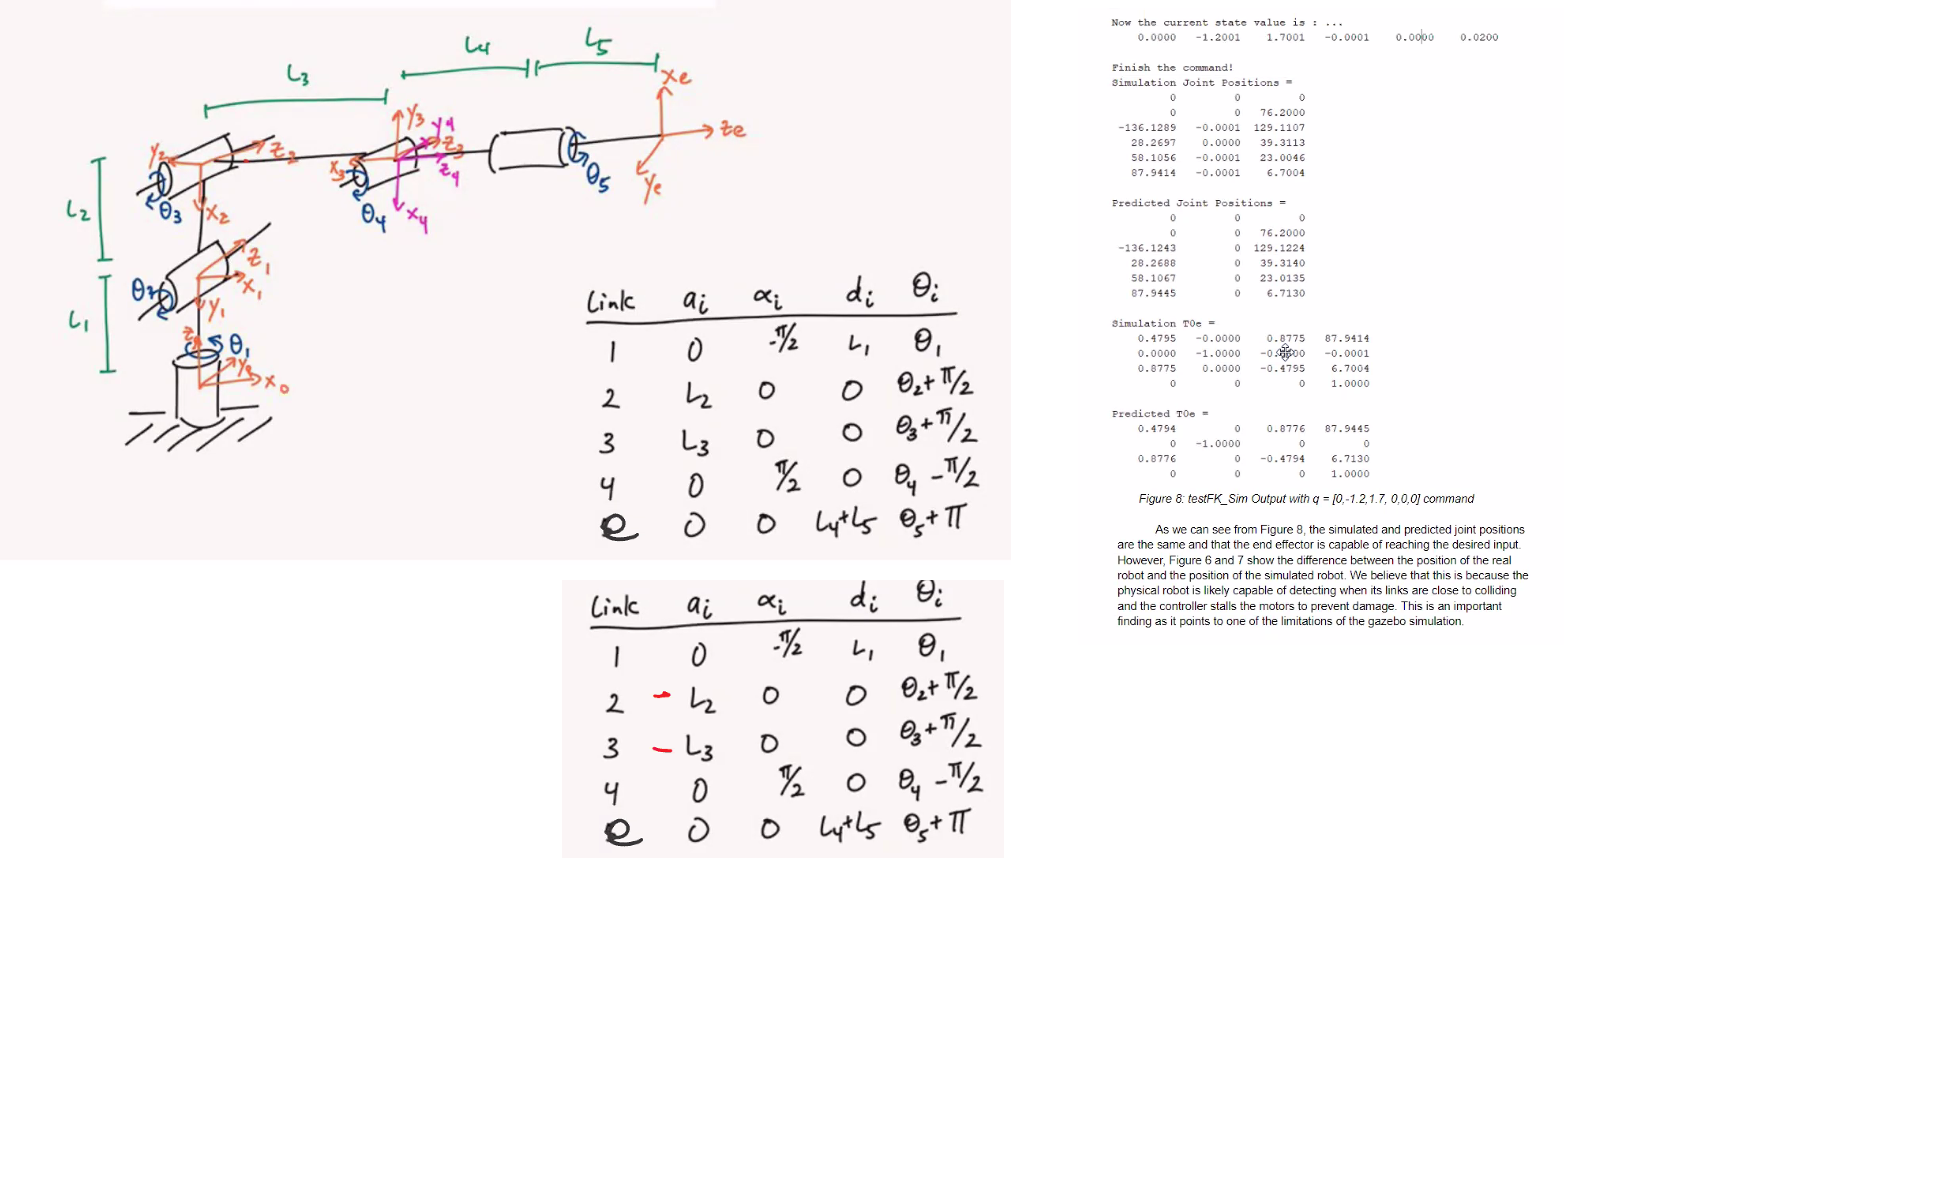 L3
L4
L5
xe
ze
ye
y3
y4
z3
z4
x3
x4
θ4
θ5
y2
z2
x2
θ3
L2
z1
x1
y1
θ2
L1
z0
θ1
y0
x0
Link ai αi di θi
1 0 -π/2 L1 θ1
2 L2 0 0 θ2+π/2
3 L3 0 0 θ3+π/2
4 0 π/2 0 θ4-π/2
e 0 0 L4+L5 θ5+π
Link ai αi di θi
1 0 -π/2 L1 θ1
2 -L2 0 0 θ2+π/2
3 -L3 0 0 θ3+π/2
4 0 π/2 0 θ4-π/2
e 0 0 L4+L5 θ5+π
Now the current state value is : ...
0.0000 -1.2001 1.7001 -0.0001 0.0000 0.0200
Finish the command!
Simulation Joint Positions =
0 0 0
0 0 76.2000
-136.1289 -0.0001 129.1107
28.2697 0.0000 39.3113
58.1056 -0.0001 23.0046
87.9414 -0.0001 6.7004
Predicted Joint Positions =
0 0 0
0 0 76.2000
-136.1243 0 129.1224
28.2688 0 39.3140
58.1067 0 23.0135
87.9445 0 6.7130
Simulation T0e =
0.4795 -0.0000 0.8775 87.9414
0.0000 -1.0000 -0.0000 -0.0001
0.8775 0.0000 -0.4795 6.7004
0 0 0 1.0000
Predicted T0e =
0.4794 0 0.8776 87.9445
0 -1.0000 0 0
0.8776 0 -0.4794 6.7130
0 0 0 1.0000
Figure 8: testFK_Sim Output with q = [0,-1.2,1.7, 0,0,0] command
As we can see from Figure 8, the simulated and predicted joint positions
are the same and that the end effector is capable of reaching the desired input.
However, Figure 6 and 7 show the difference between the position of the real
robot and the position of the simulated robot. We believe that this is because the
physical robot is likely capable of detecting when its links are close to colliding
and the controller stalls the motors to prevent damage. This is an important
finding as it points to one of the limitations of the gazebo simulation.